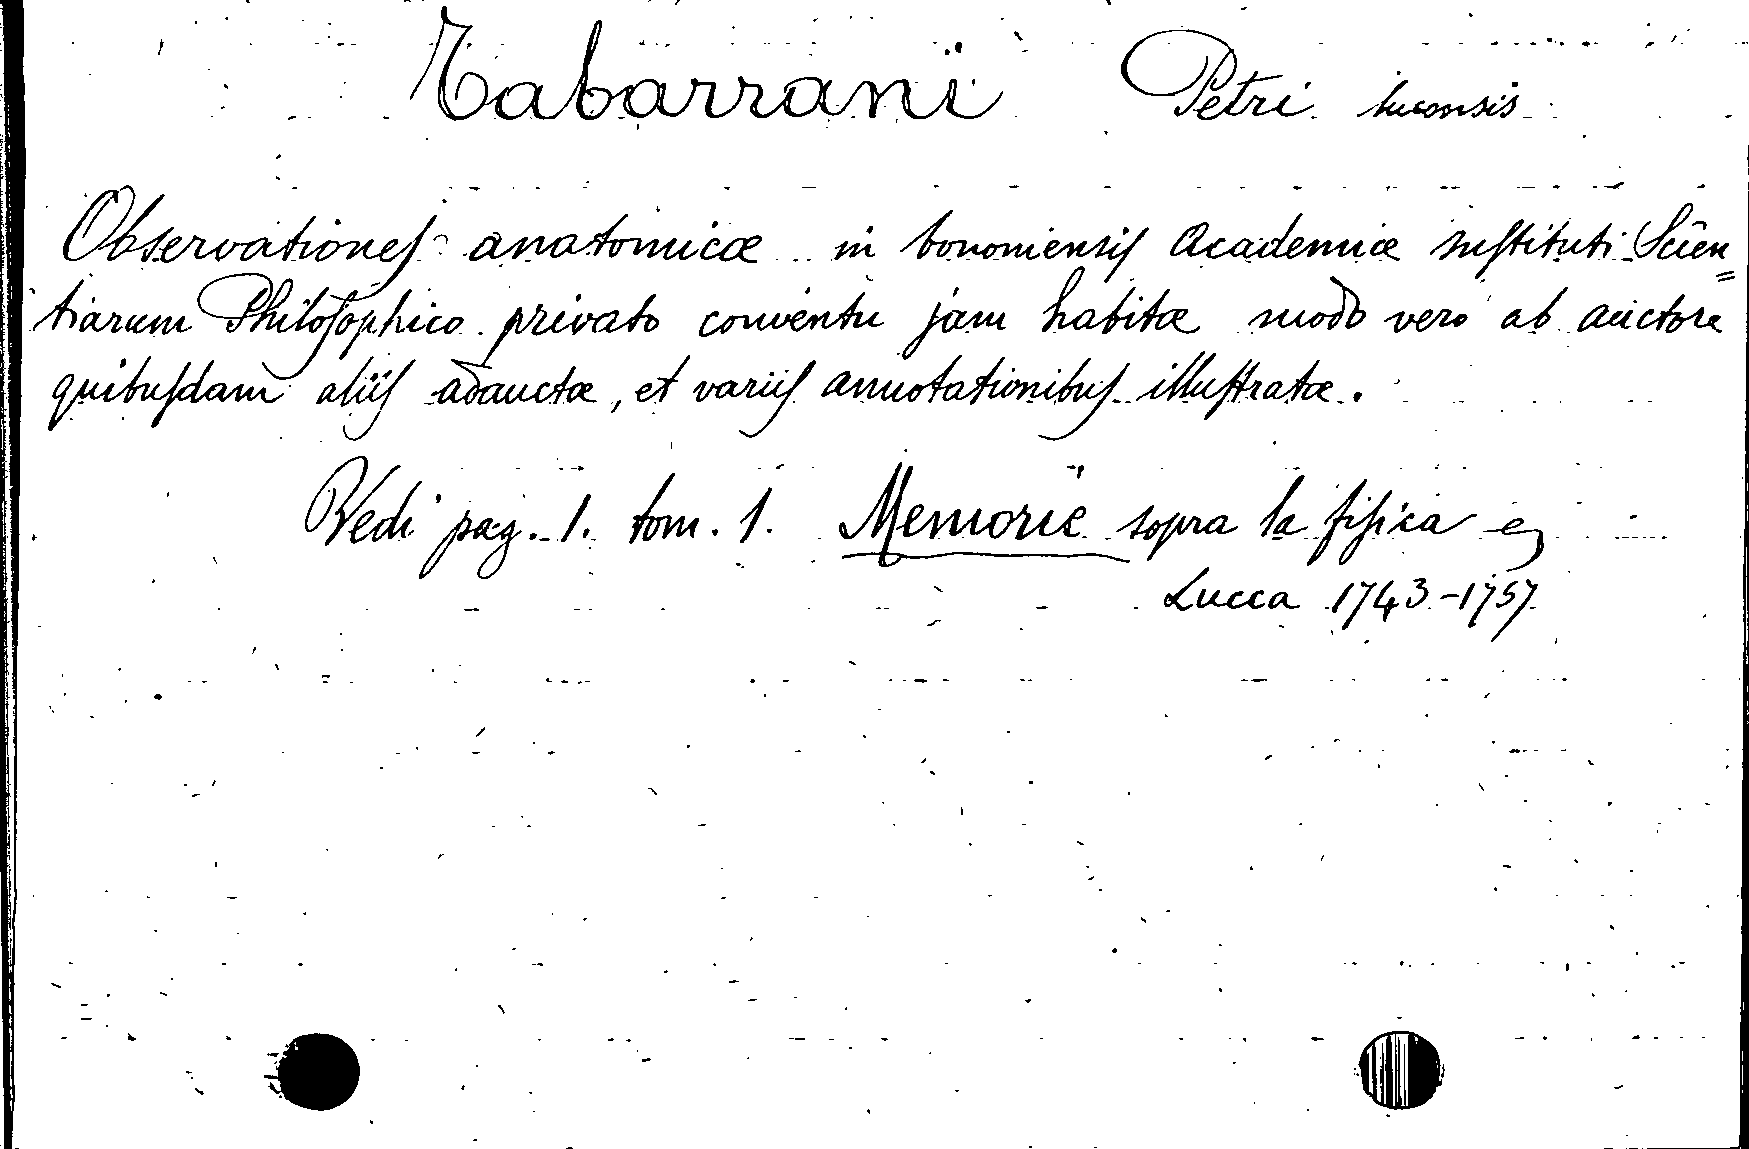 Tabarrani Petri lucensis
Observationeſ anatomicæ in bononiensiſ Academiæ Inſtituti Scien=
tiarum Philoſophico privato conventu jam habitæ modo vero ab auctore
quibuſdam aliiſ adauctæ, et variiſ annotationibuſ illuſtratæ.
Vedi pag. 1. tom. 1. Memorie sopra la fiſica e
Lucca 1743-1757